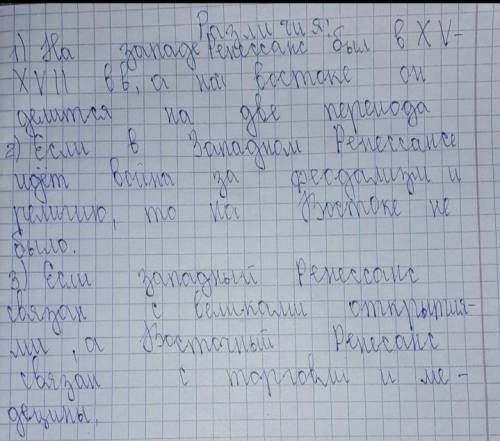 Различия:
1) На западе Ренессанс был в XV-
XVII вв, а на востоке он
делится на две периода
2) Если в Западном Ренессансе
идёт война за феодализм и
религию, то на Востоке не
было.
3) Если западный Ренессанс
связан с великами открытия-
ми, а Восточный Ренессанс
связан с торговли и ме-
децины.